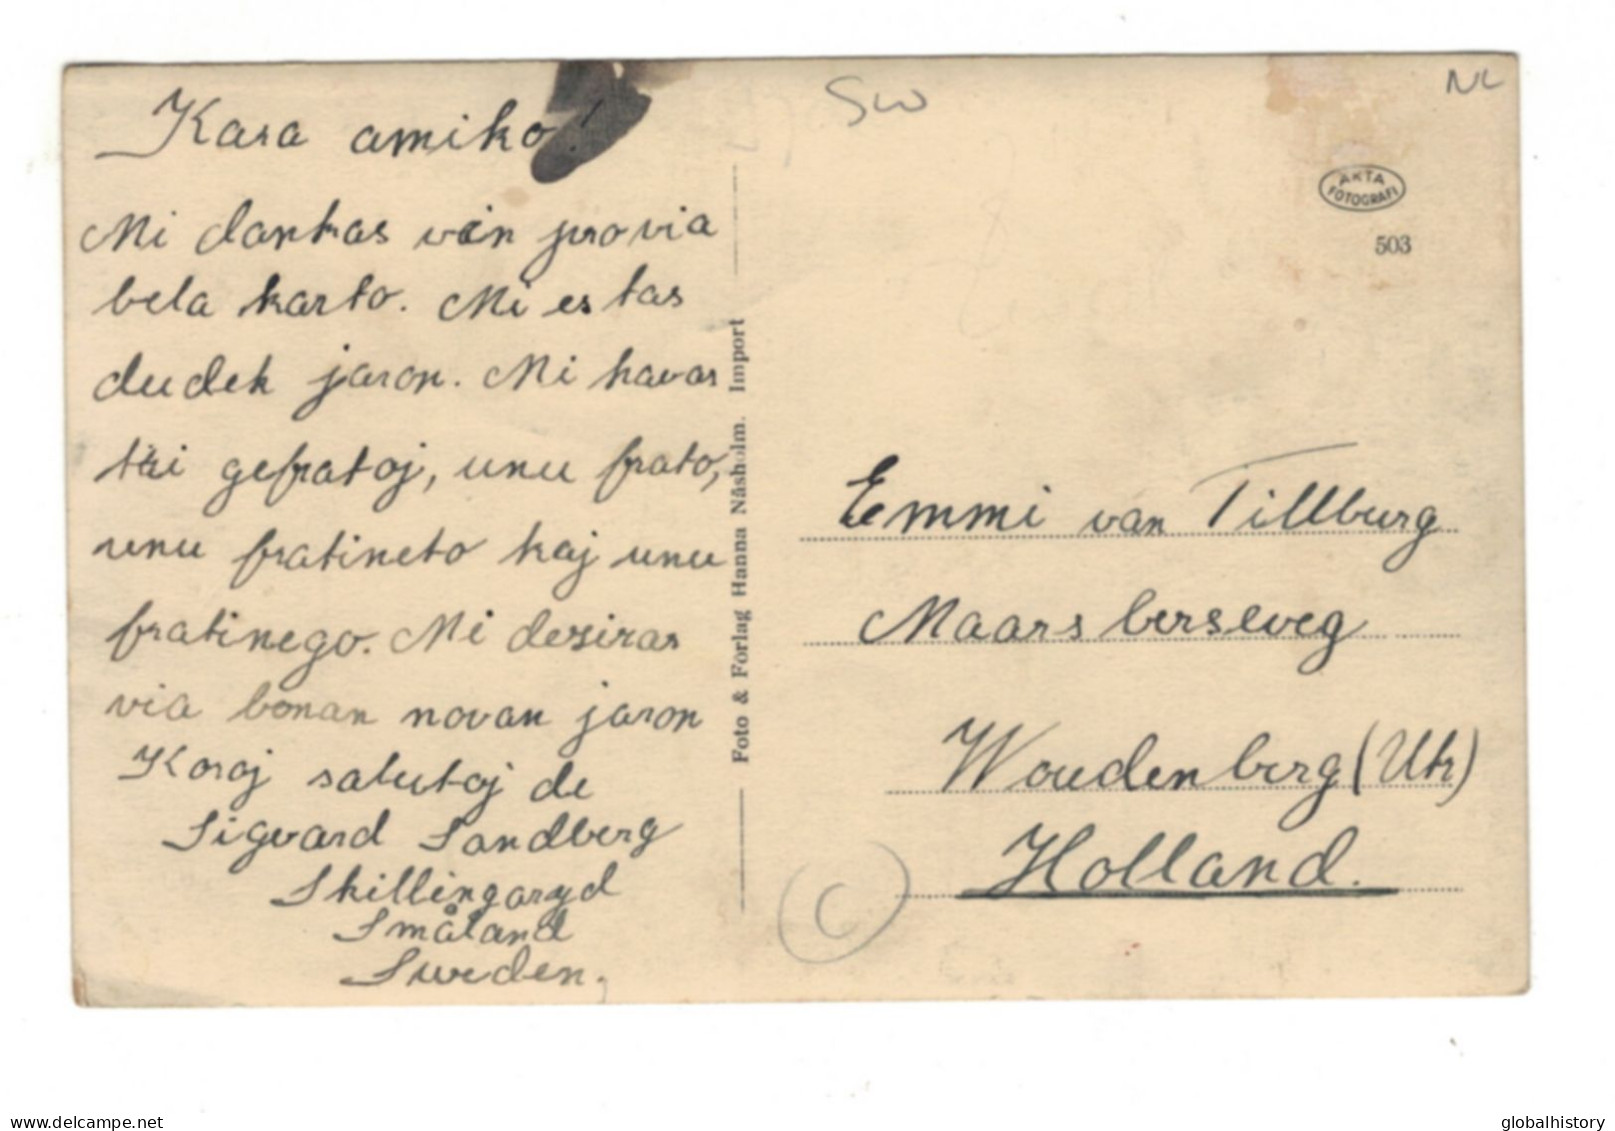 Kara amiko!
Mi dankas vin pro via
bela karto. Mi estas
dudek jaron. Mi havas
tri gefratoj, unu frato,
unu fratineto kaj unu
fratinego. Mi desiras
via bonan novan jaron
Koraj salutoj de
Sigvard Sandberg
Skillingaryd
Småland
Sweden.
Foto & Förlag Hanna Näsholm. Import
SW
NL
AKTA
FOTOGRAFI
503
Emmi van Tillburg
Maarsberseweg
Woudenberg (Utr)
Holland.
C
www.delcampe.net
globalhistory